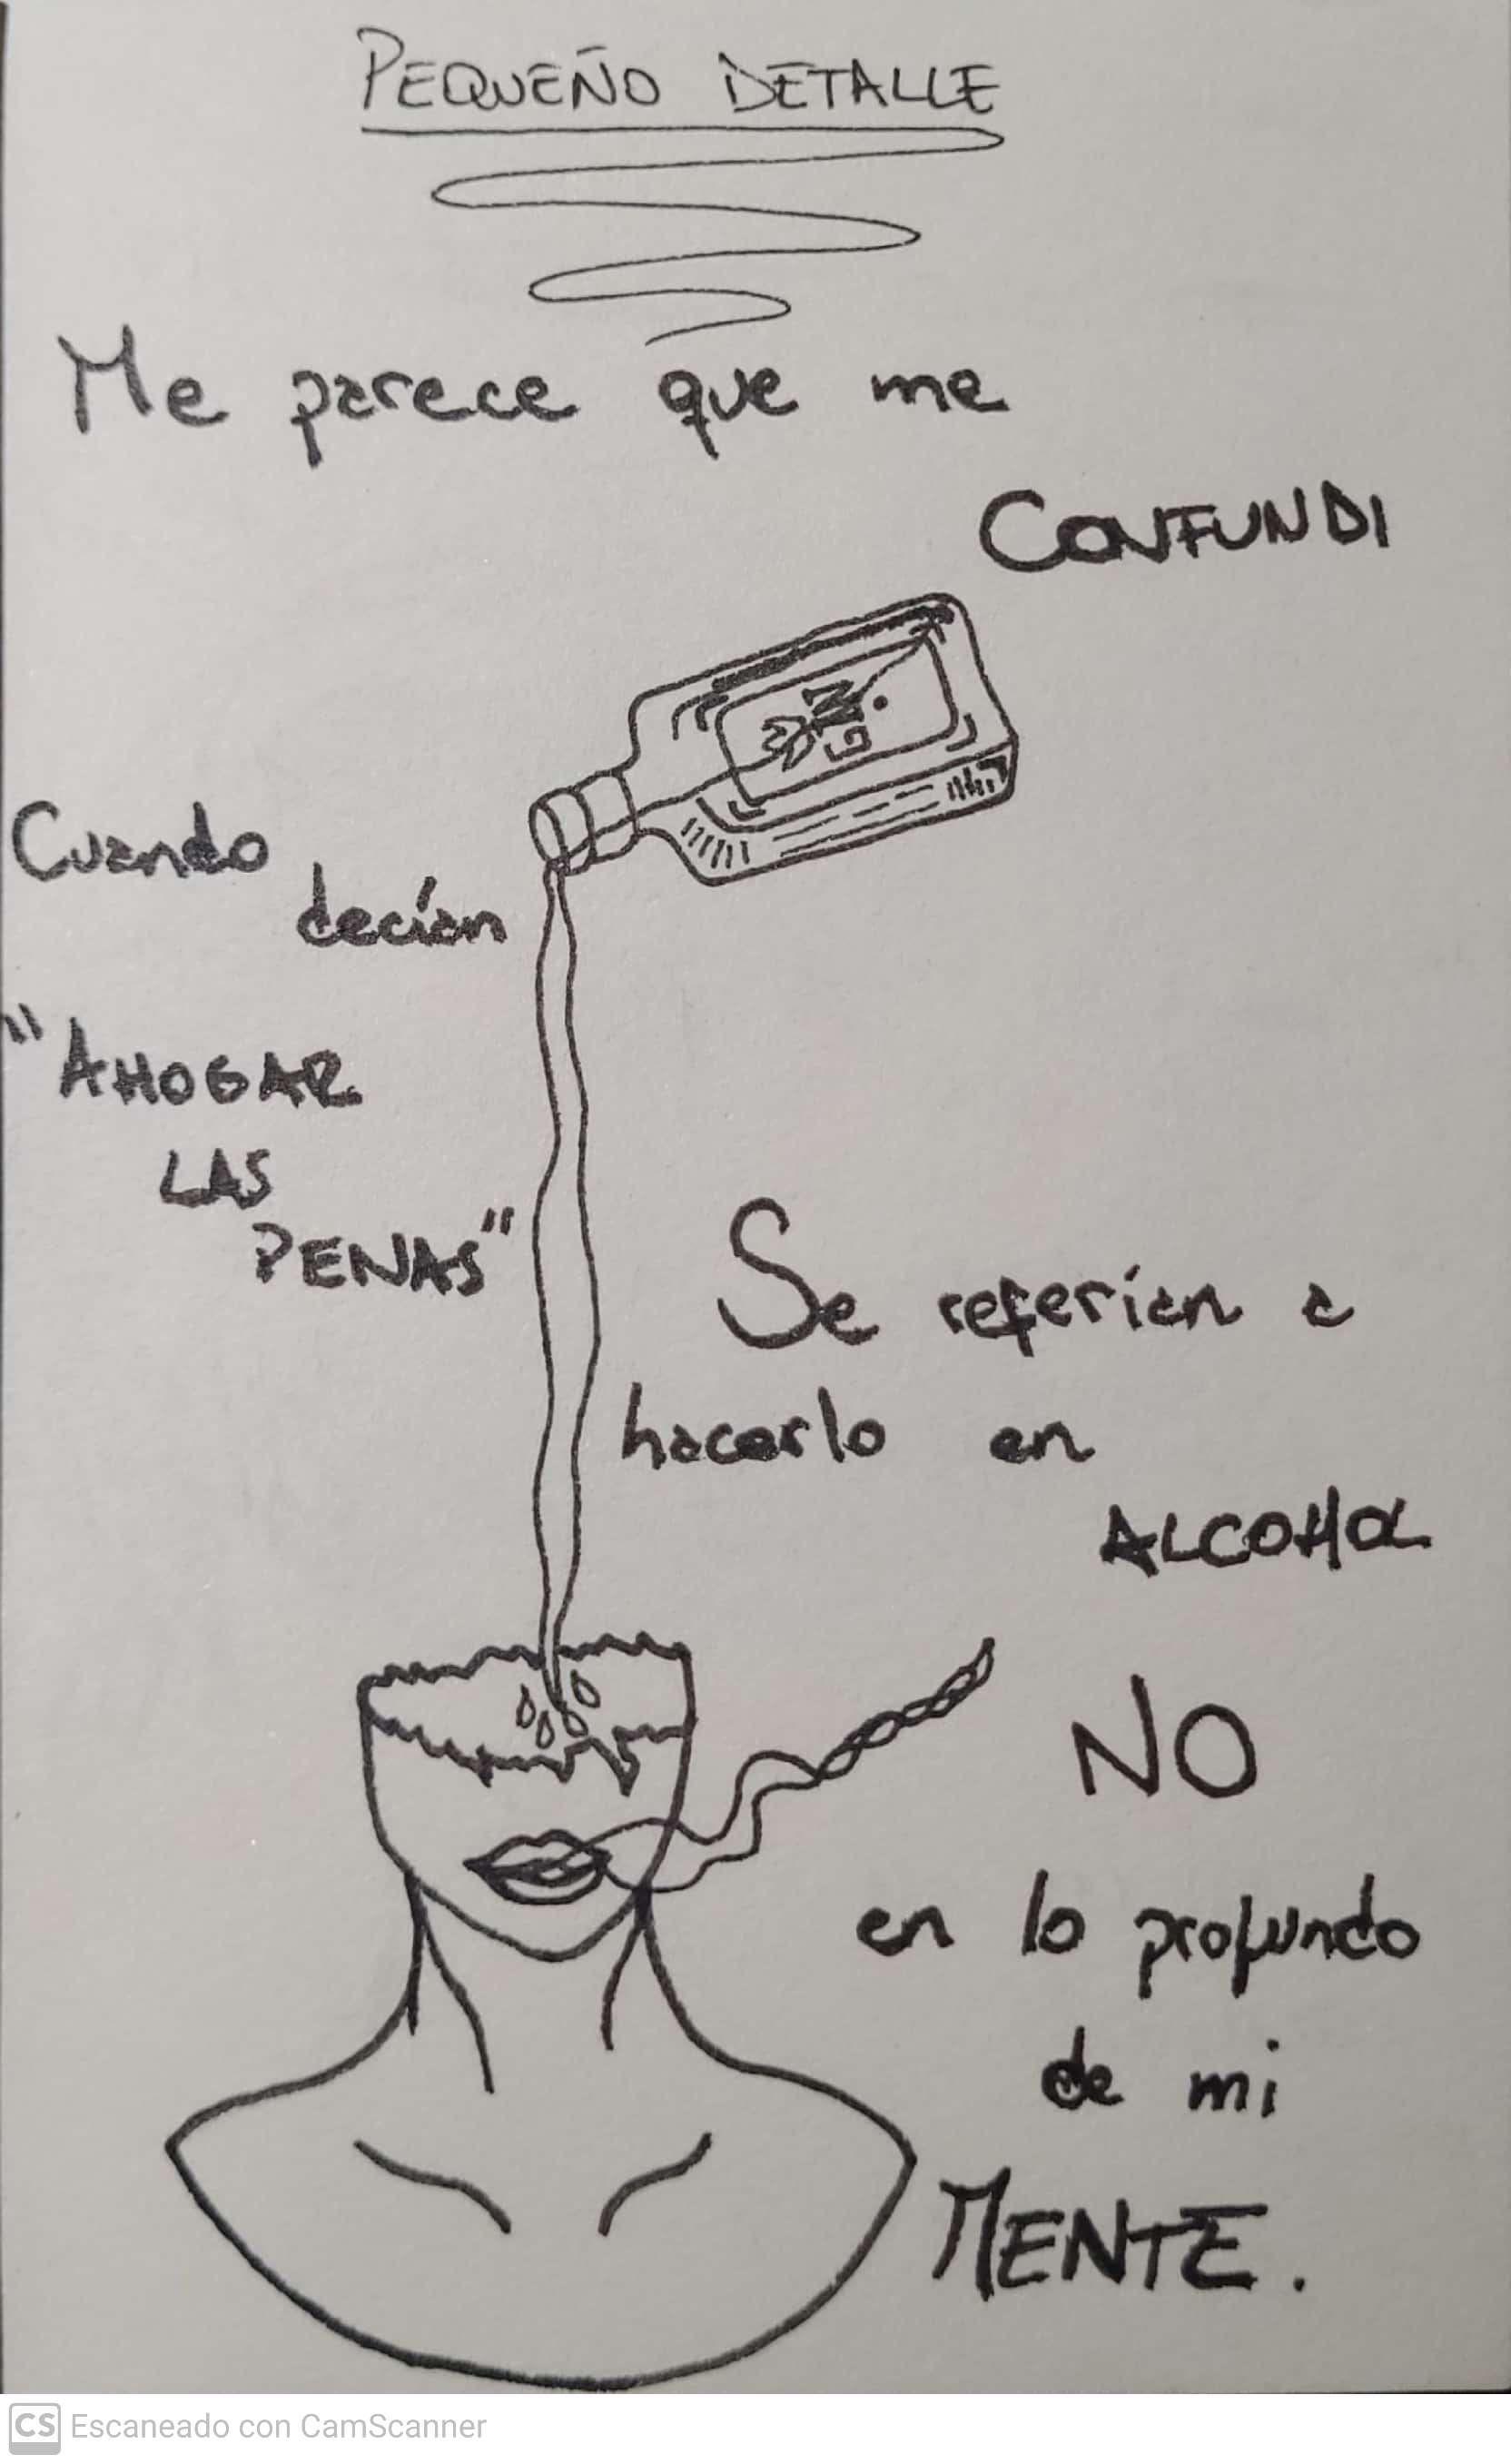 PEQUEÑO DETALLE
Me parece que me
CONFUNDI
Cuando
decían
"AHOGAR
LAS
PENAS"
Se referían a
hacerlo en
ALCOHOL
NO
en lo profundo
de mi
MENTE.
CS Escaneado con CamScanner